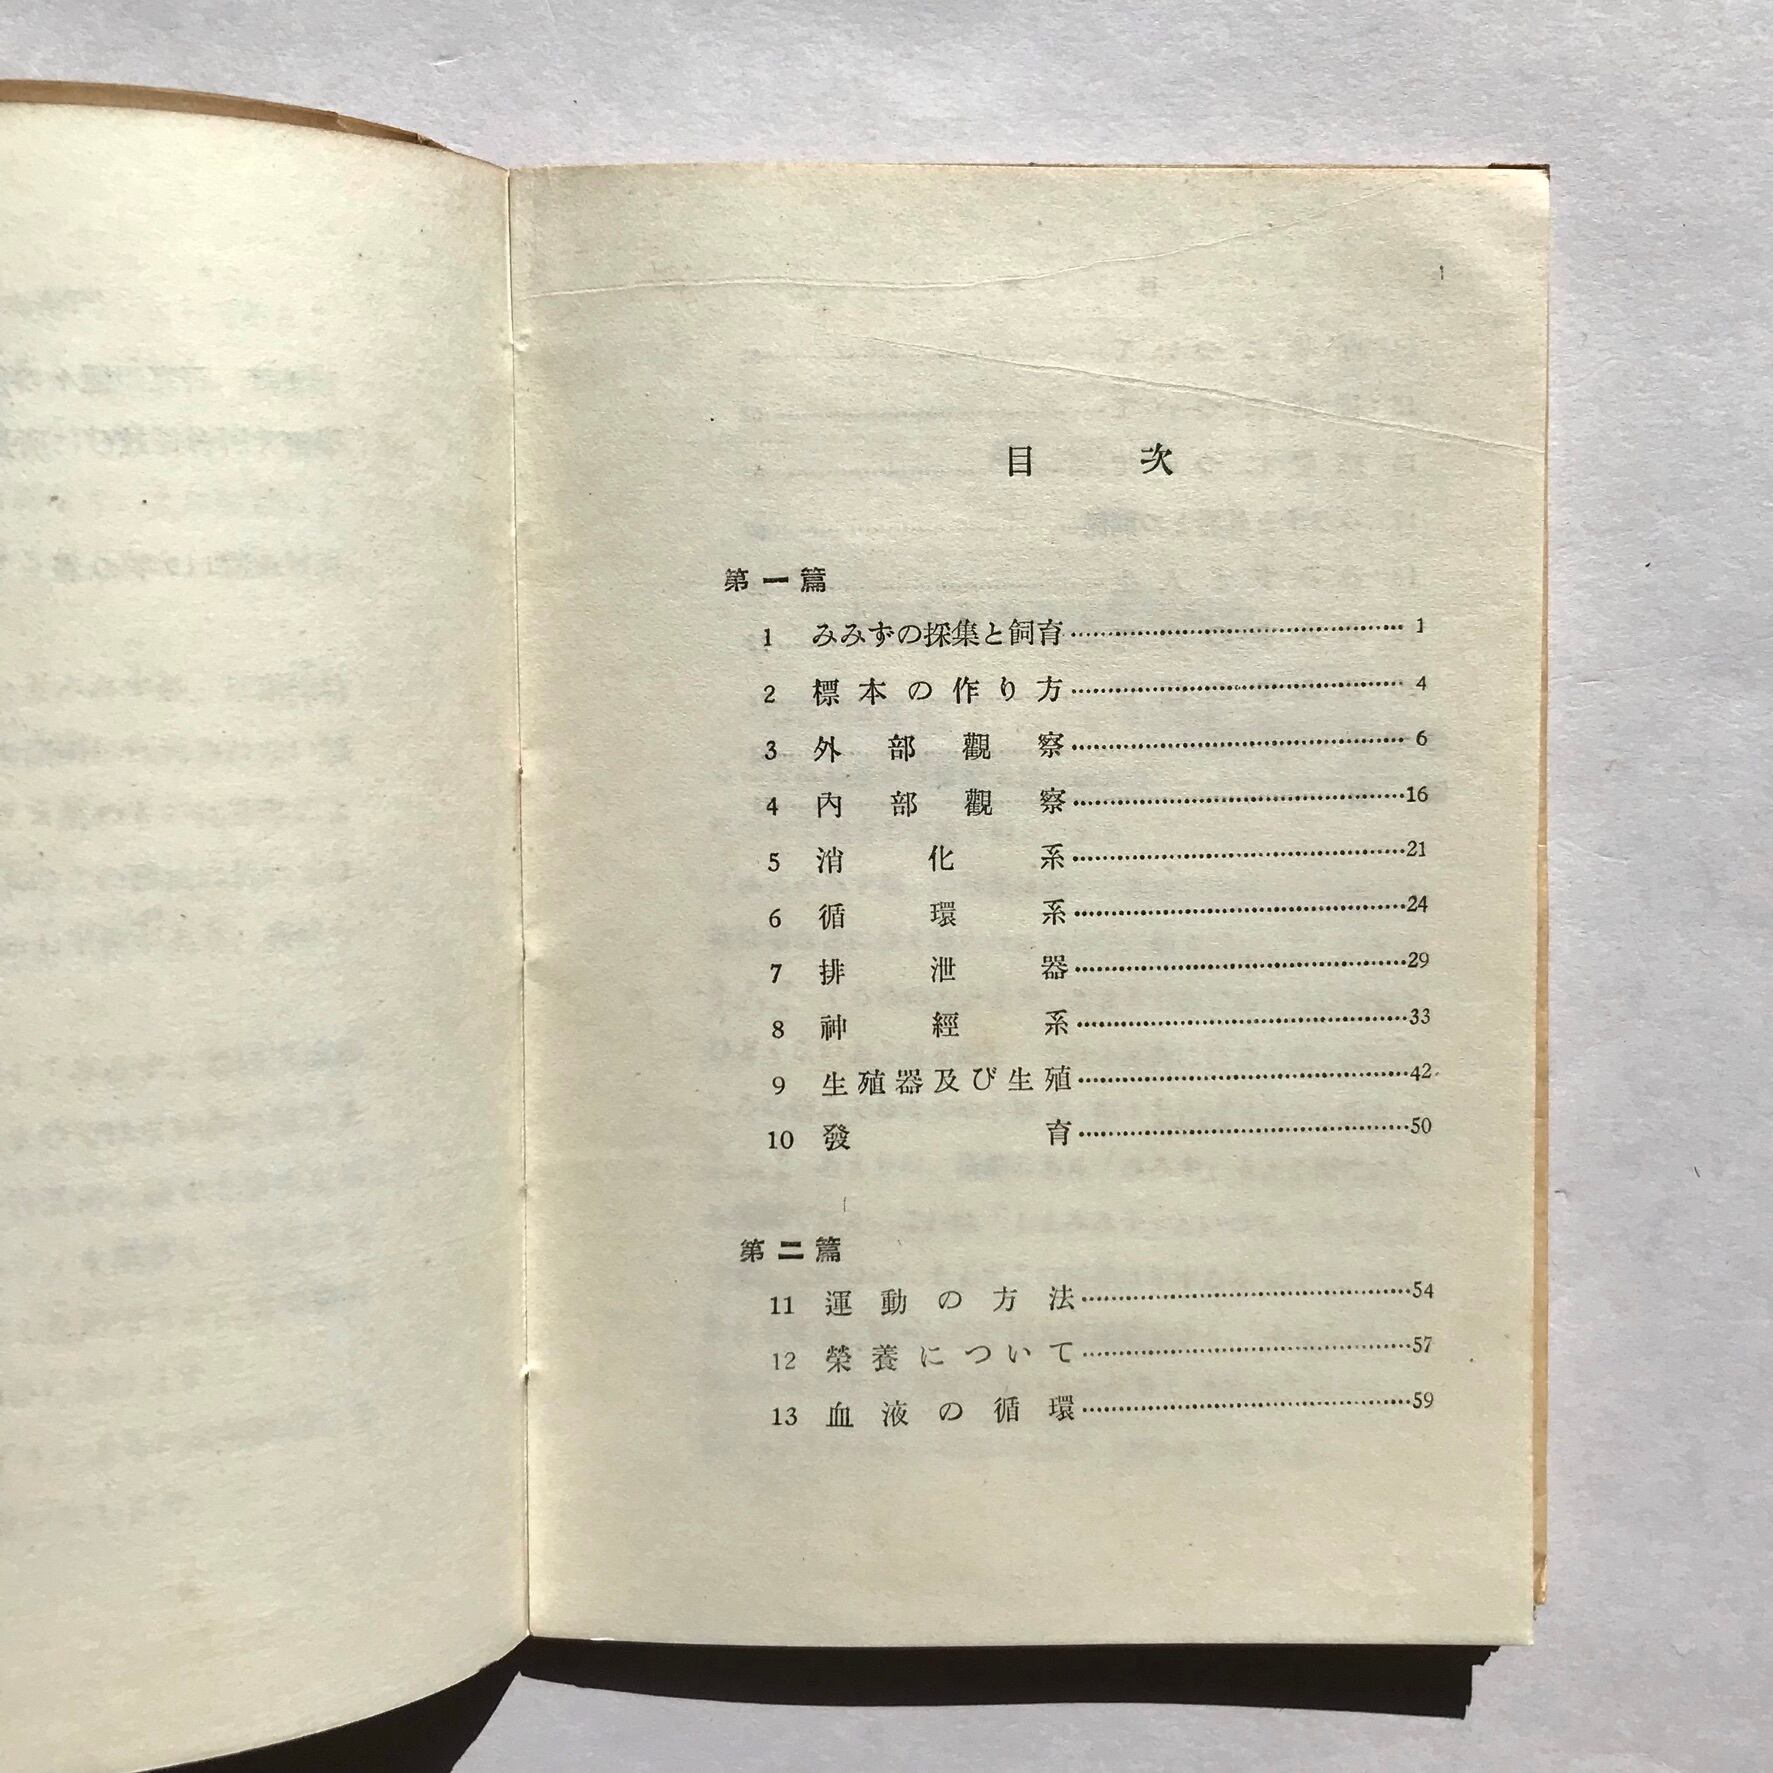 目次
第一篇
1 みみずの採集と飼育……1
2 標本の作り方……4
3 外部觀察……6
4 內部觀察……16
5 消化系……21
6 循環系……24
7 排泄器……29
8 神經系……33
9 生殖器及び生殖……42
10 發育……50
第二篇
11 運動の方法……54
12 榮養について……57
13 血液の循環……59